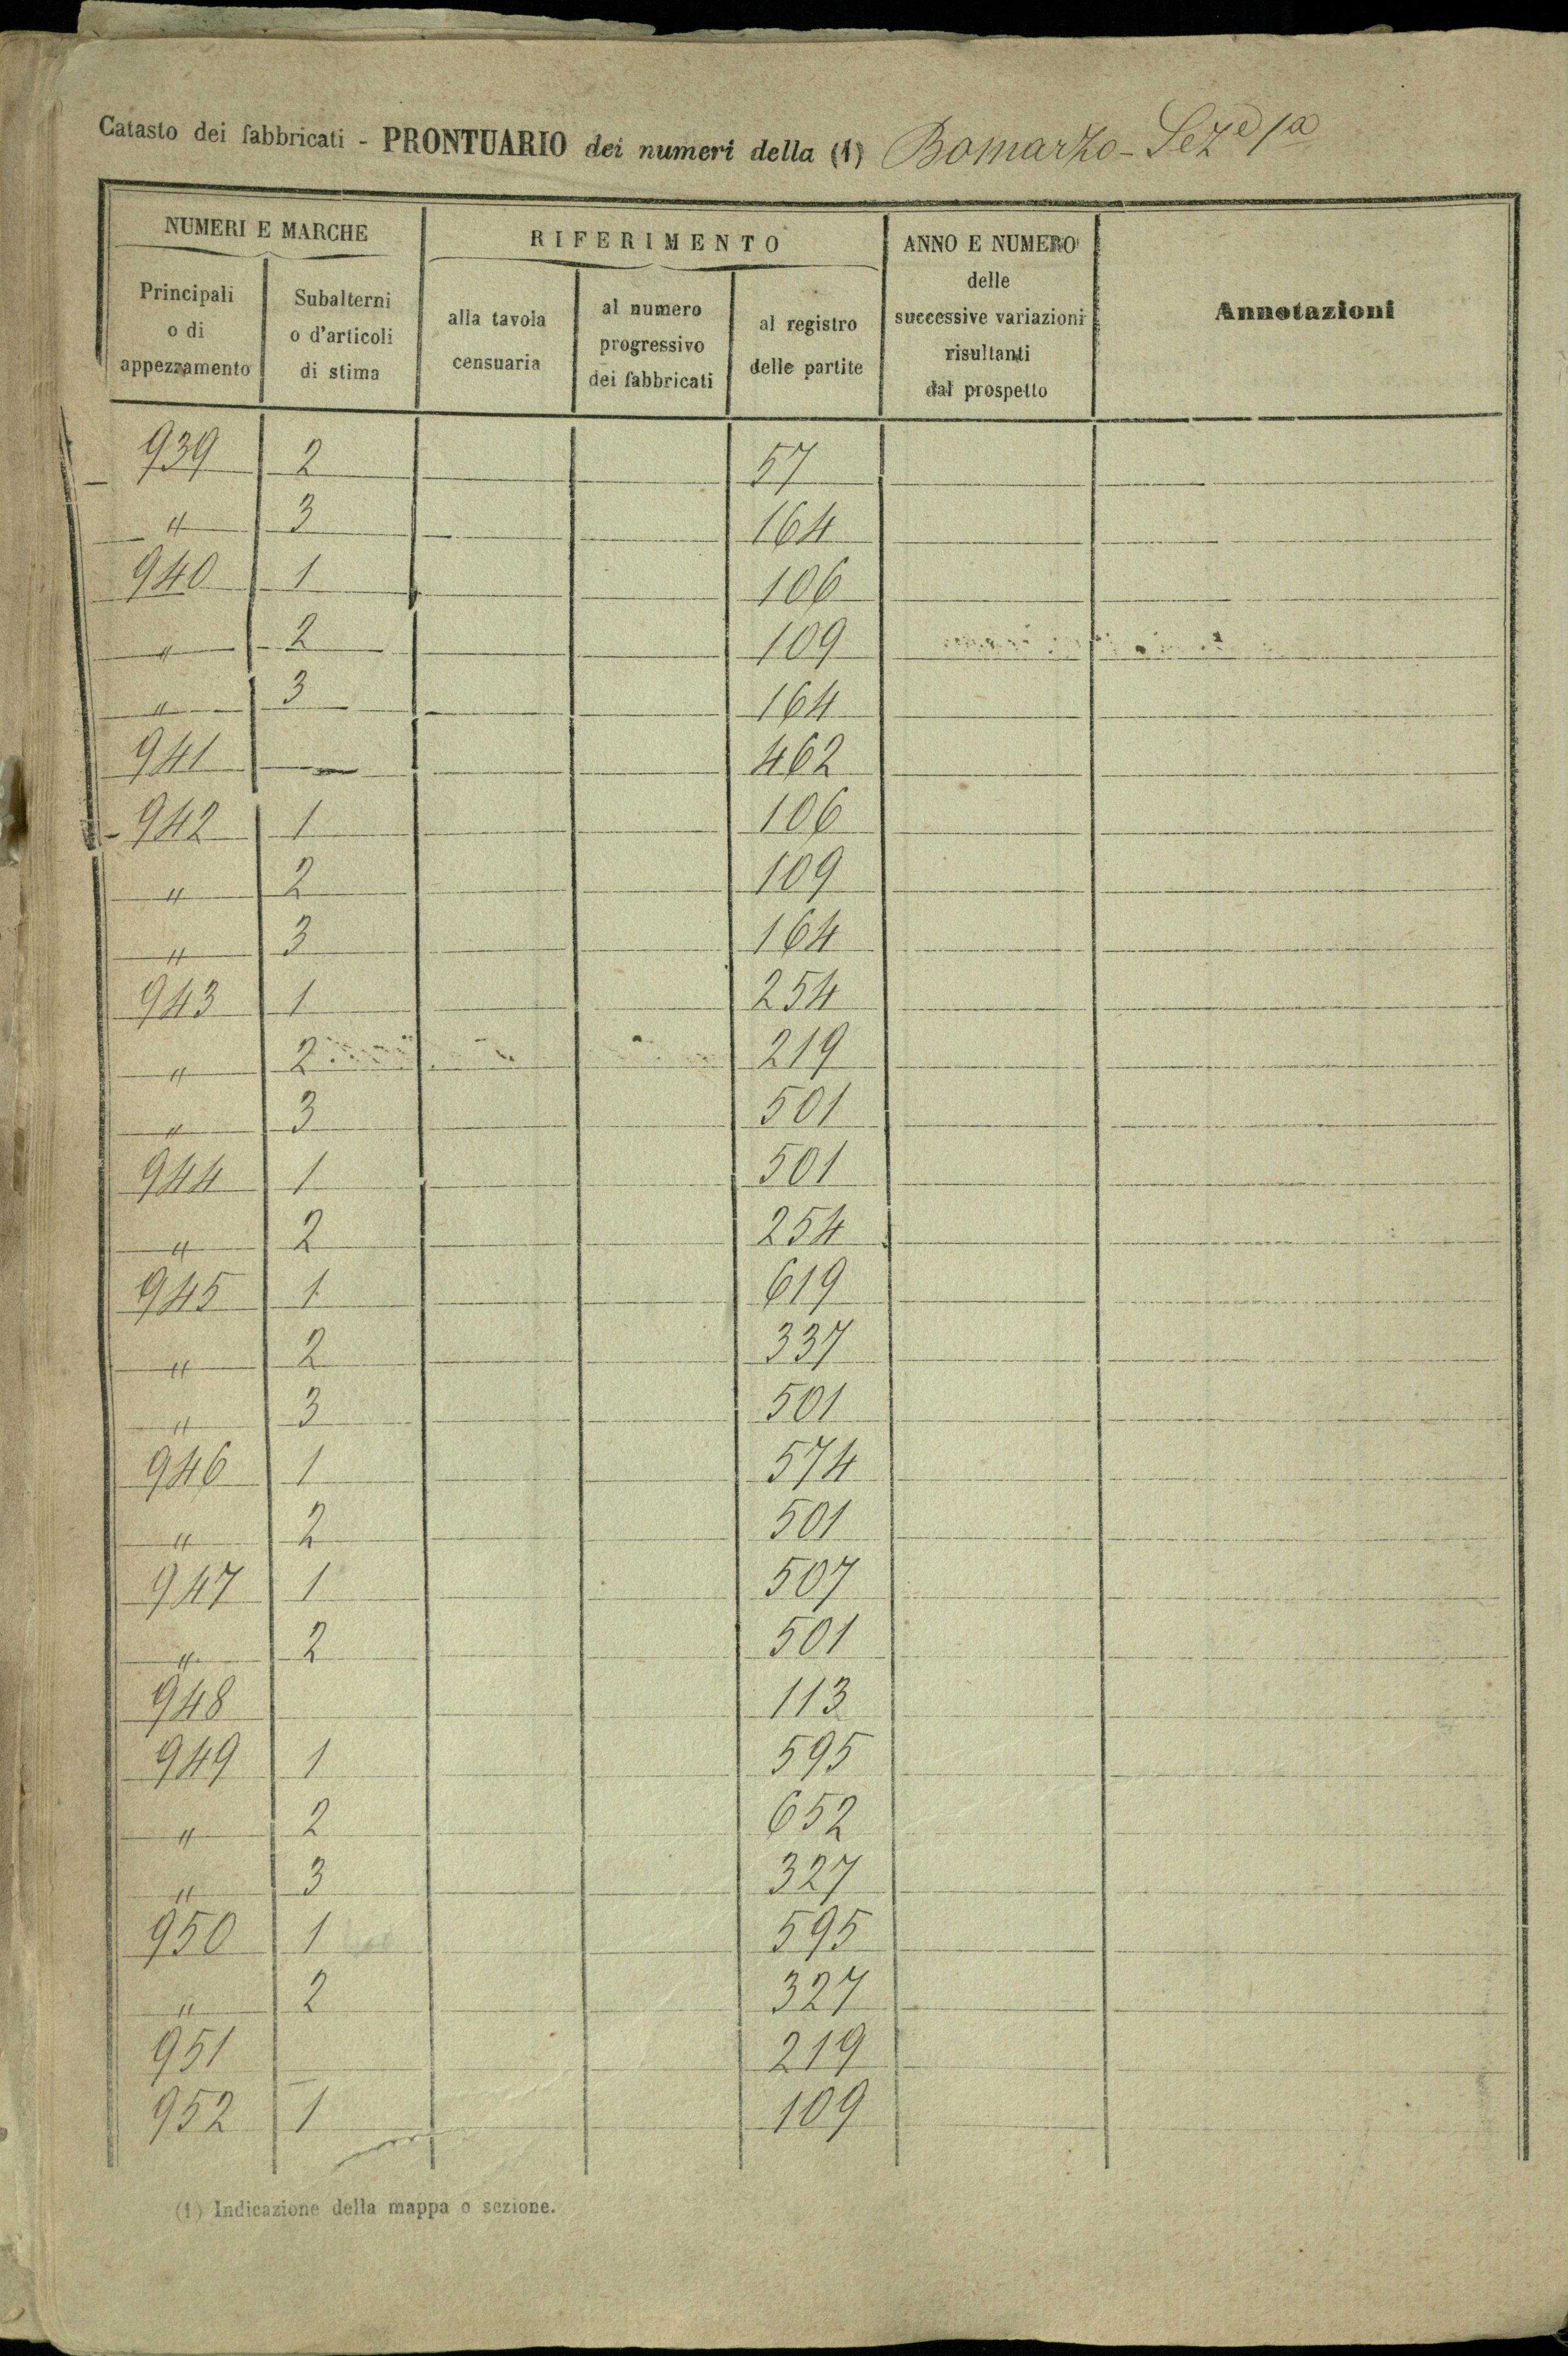 Catasto dei fabbricati - PRONTUARIO dei numeri della (1) Bomarzo - Sez.e 1a
NUMERI E MARCHE
RIFERIMENTO
ANNO E NUMERO
delle
successive variazioni
risultanti
dal prospetto
Annotazioni
Principali
o di
appezzamento
Subalterni
o d'articoli
di stima
alla tavola
censuaria
al numero
progressivo
dei fabbricati
al registro
delle partite
939 2 57
" 3 164
940 1 106
" 2 109
" 3 164
941 — 462
942 1 106
" 2 109
" 3 164
943 1 254
" 2 219
" 3 501
944 1 501
" 2 254
945 1 619
" 2 337
" 3 501
946 1 574
" 2 501
947 1 507
" 2 501
948 113
949 1 595
" 2 652
" 3 327
950 1 595
" 2 327
951 219
952 1 109
(1) Indicazione della mappa o sezione.